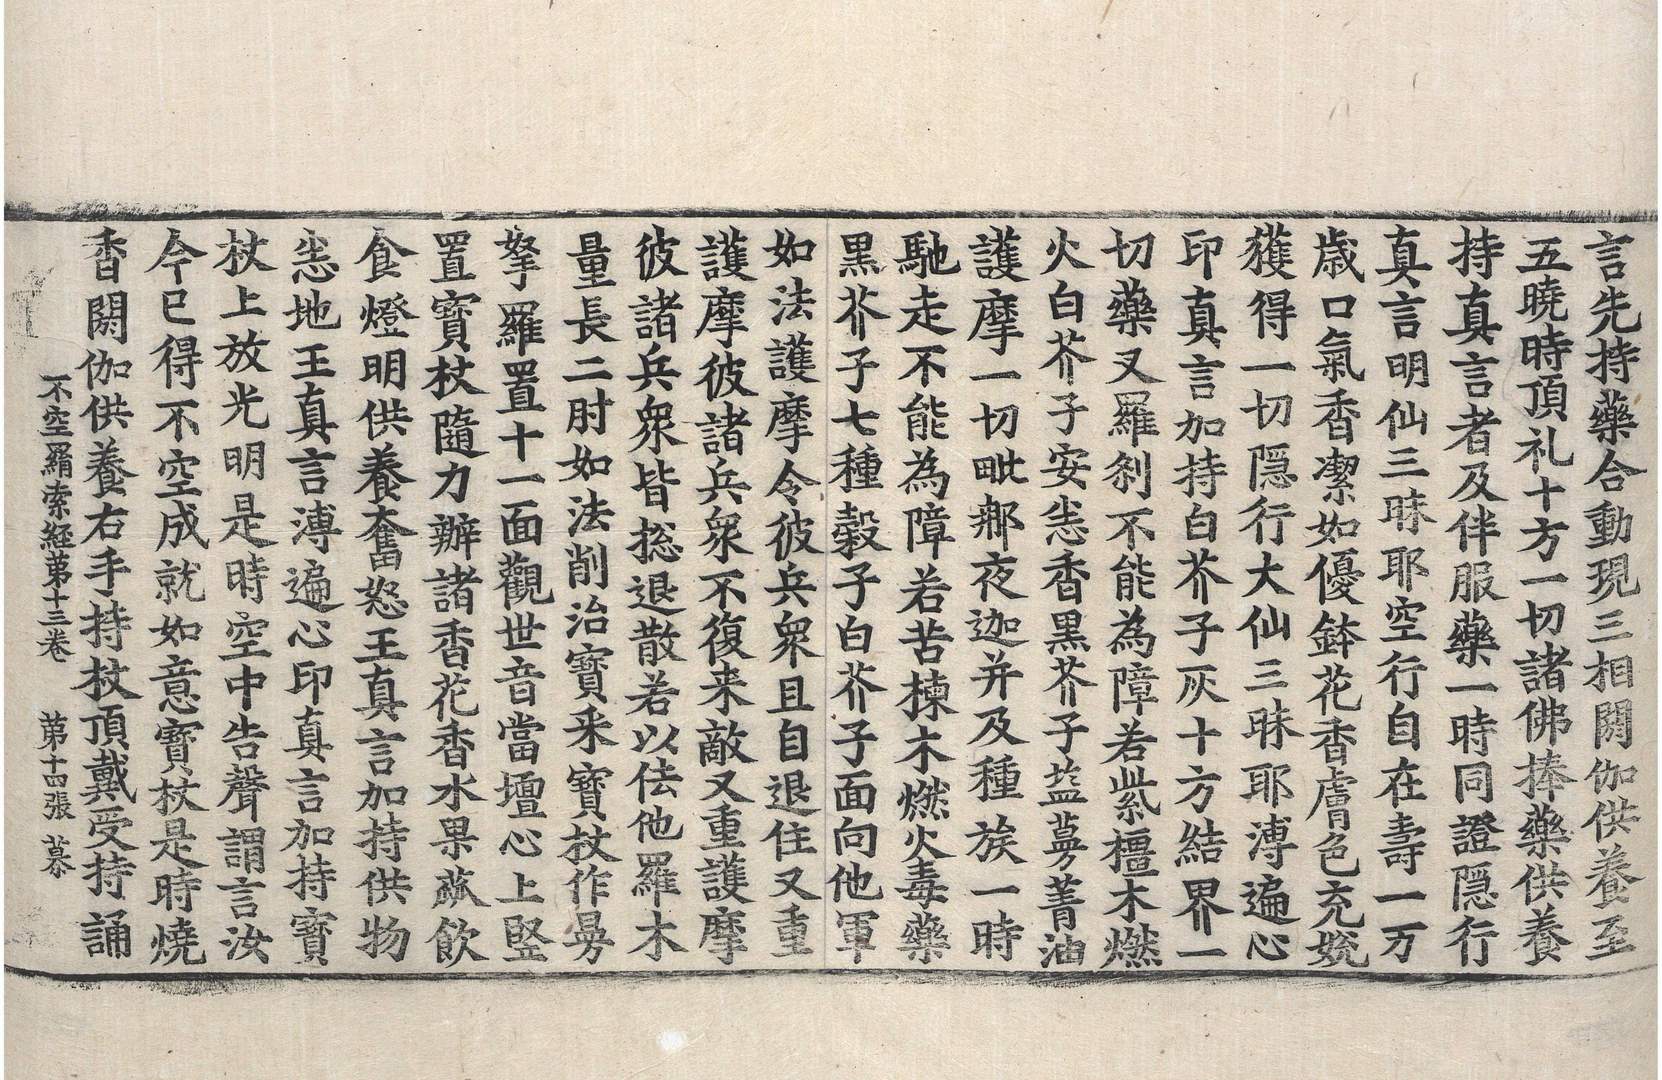 言先持藥合動現三相閼伽供養至
五曉時頂礼十方一切諸佛捧藥供養
持真言者及伴服藥一時同證隱行
真言明仙三昧耶空行自在壽一万
歲口氣香潔如優鉢花香膚色充娧
獲得一切隱行大仙三昧耶溥遍心
印真言加持白芥子灰十方結界一
切藥叉羅刹不能為障若紫檀木燃
火白芥子安悉香黑芥子塩蔓菁油
護摩一切毗那夜迦并及種族一時
馳走不能為障若苦楝木燃火毒藥
黑芥子七種穀子白芥子面向他軍
如法護摩令彼兵衆且自退住又重
護摩彼諸兵衆不復来敵又重護摩
彼諸兵衆皆捴退散若以佉他羅木
量長二肘如法削治寶釆寶杖作曼
拏羅置十一面觀世音當壇心上竪
置寶杖隨力辦諸香花香水果蓏飲
食燈明供養奮怒王真言加持供物
悉地王真言溥遍心印真言加持寶
杖上放光明是時空中告聲謂言汝
今已得不空成就如意寶杖是時燒
香閼伽供養右手持杖頂戴受持誦
不空羂索経第十三卷 第十四張 慕